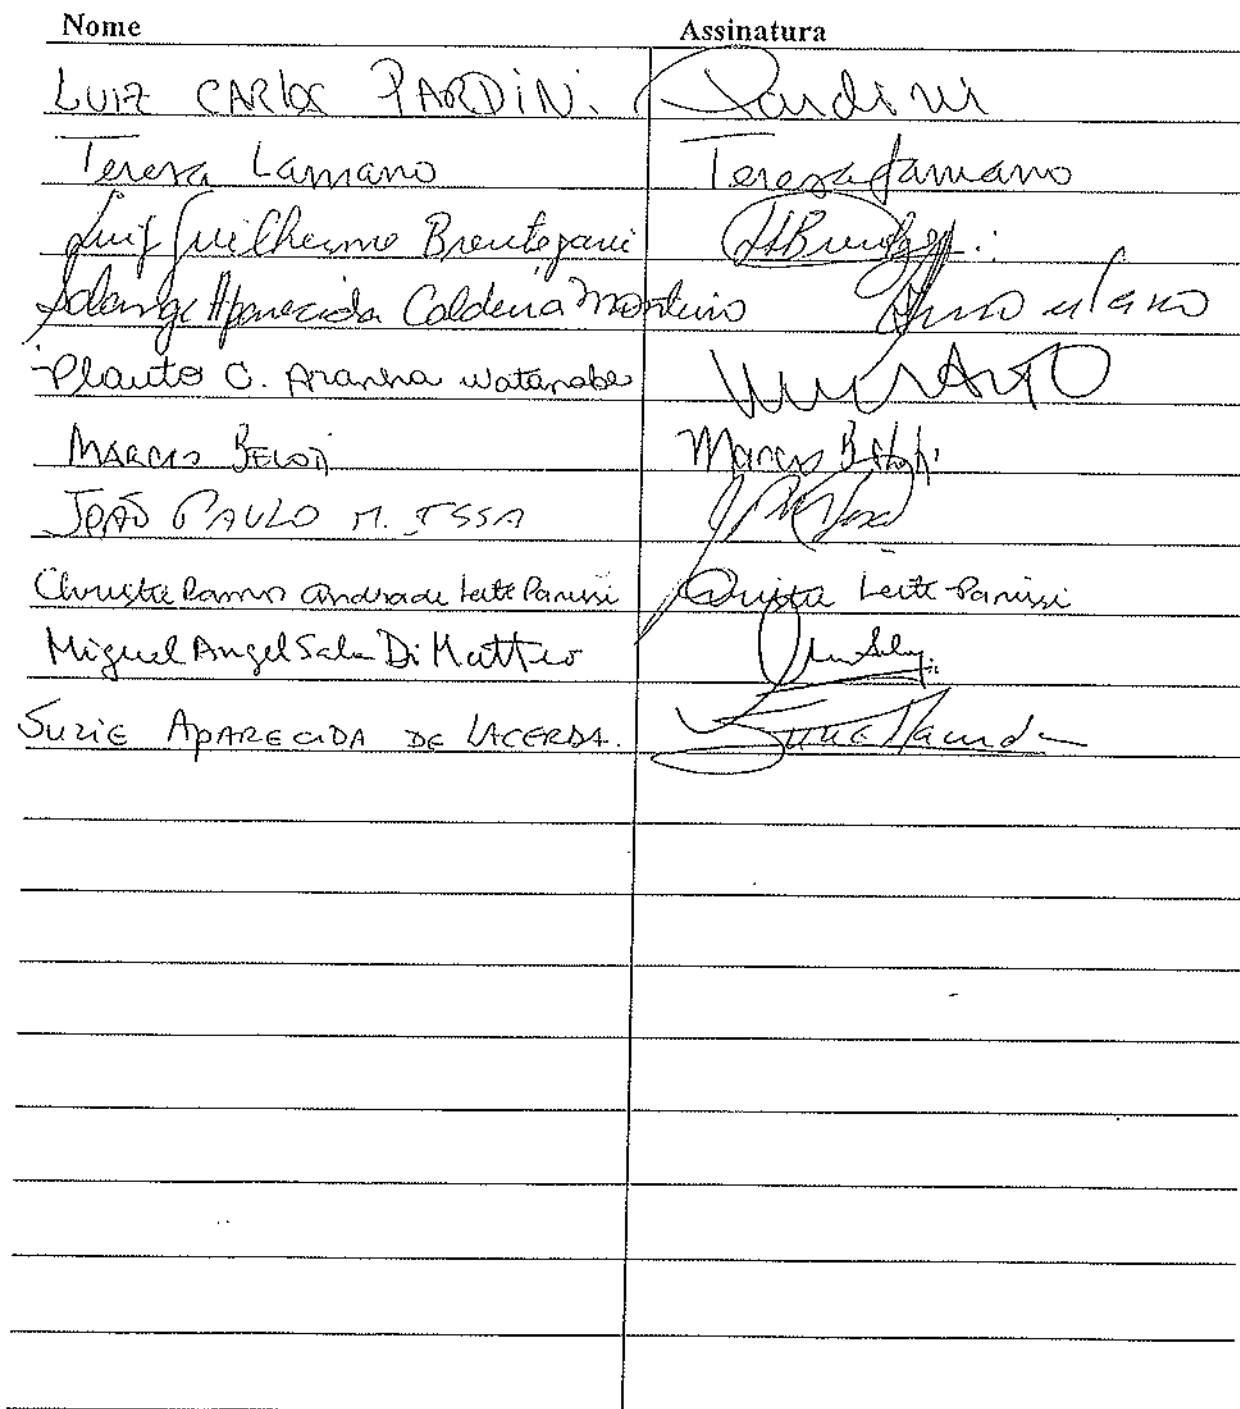 Nome Assinatura
LUIZ CARLOS PARDINI. Pardini
Teresa Lamano Teresa Lamano
Luiz Guilherme Brentegani
Solange Aparecida Caldeira Monteiro
Plauto C. Aranha Watanabe
MARCIO BELOTI Marcio Beloti
JOÃO PAULO M. ISSA
Christie Ramos Andrade Leite Panissi Christie Leite-Panissi
Miguel Angel Sala Di Matteo
SUZIE APARECIDA DE LACERDA. Suzie Lacerda